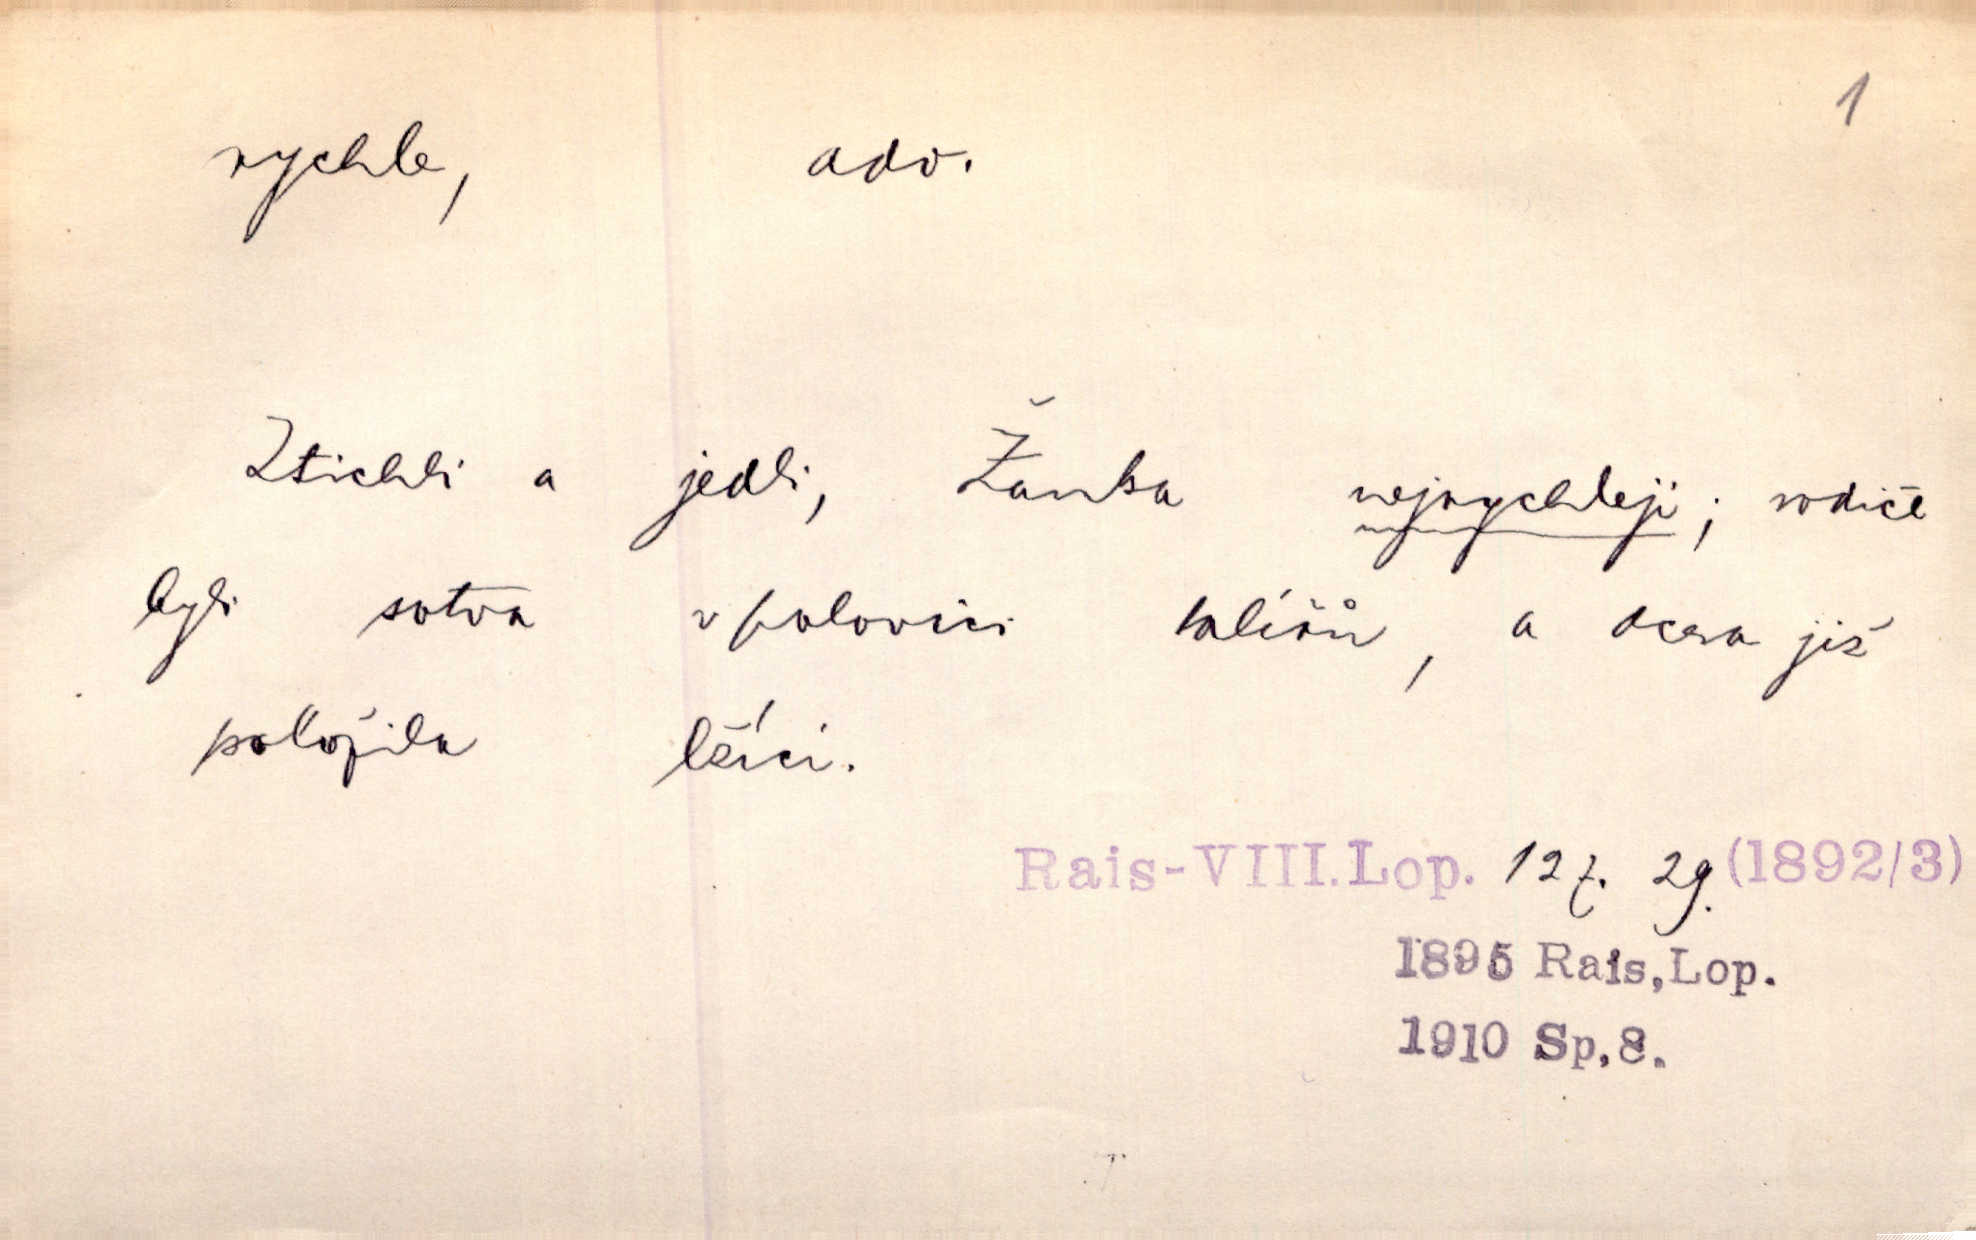 1
rychle, adv.
Ztichli a jedli, Žanka nejrychleji; rodiče
byli sotva v polovici talířů, a dcera již
položila lžíci.
Rais-VIII.Lop. 127. 29. (1892/3)
1895 Rais,Lop.
1910 Sp,8.